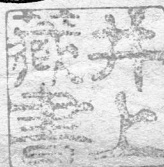 井上
藏書